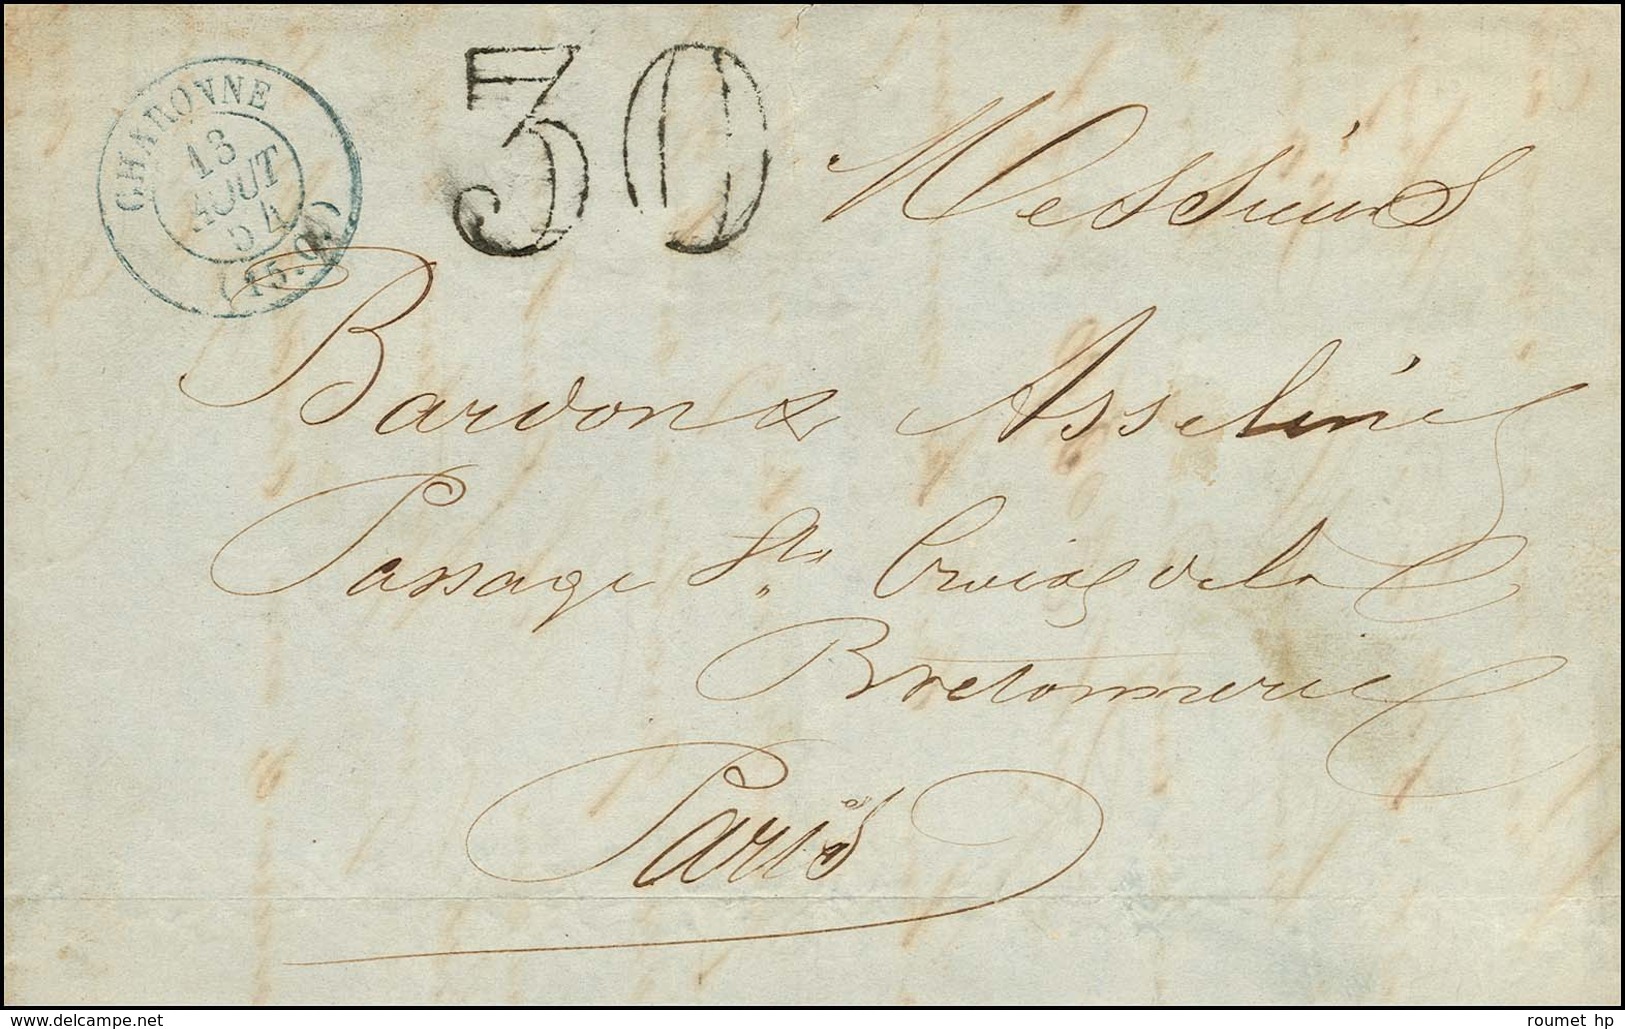 CHARONNE
13
AOUT
54
(15.O.)
30
Messieurs
Bardon & Asseline
Passage Ste Croix de la
Bretonnerie
Paris
www.delcampe.net
roumet hp